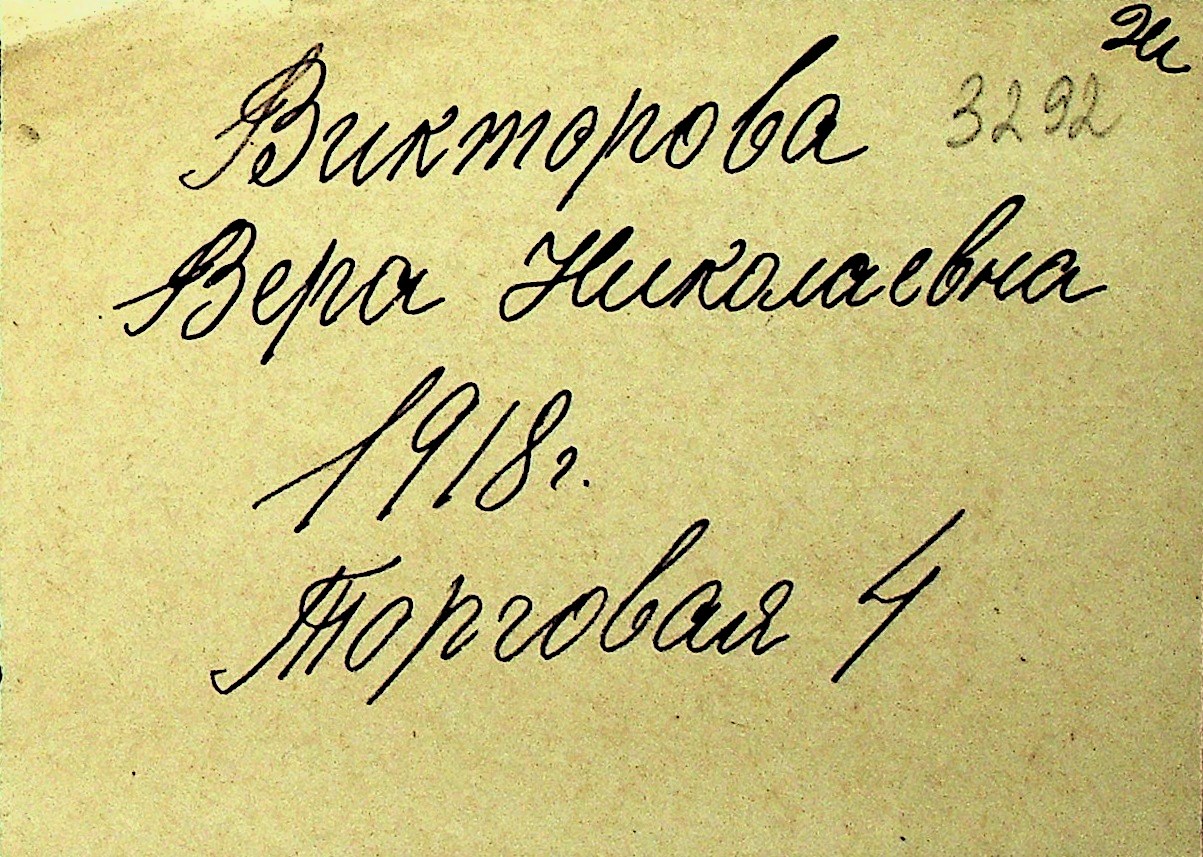 Викторова 3292
Вера Николаевна
1918г.
Торговая 4